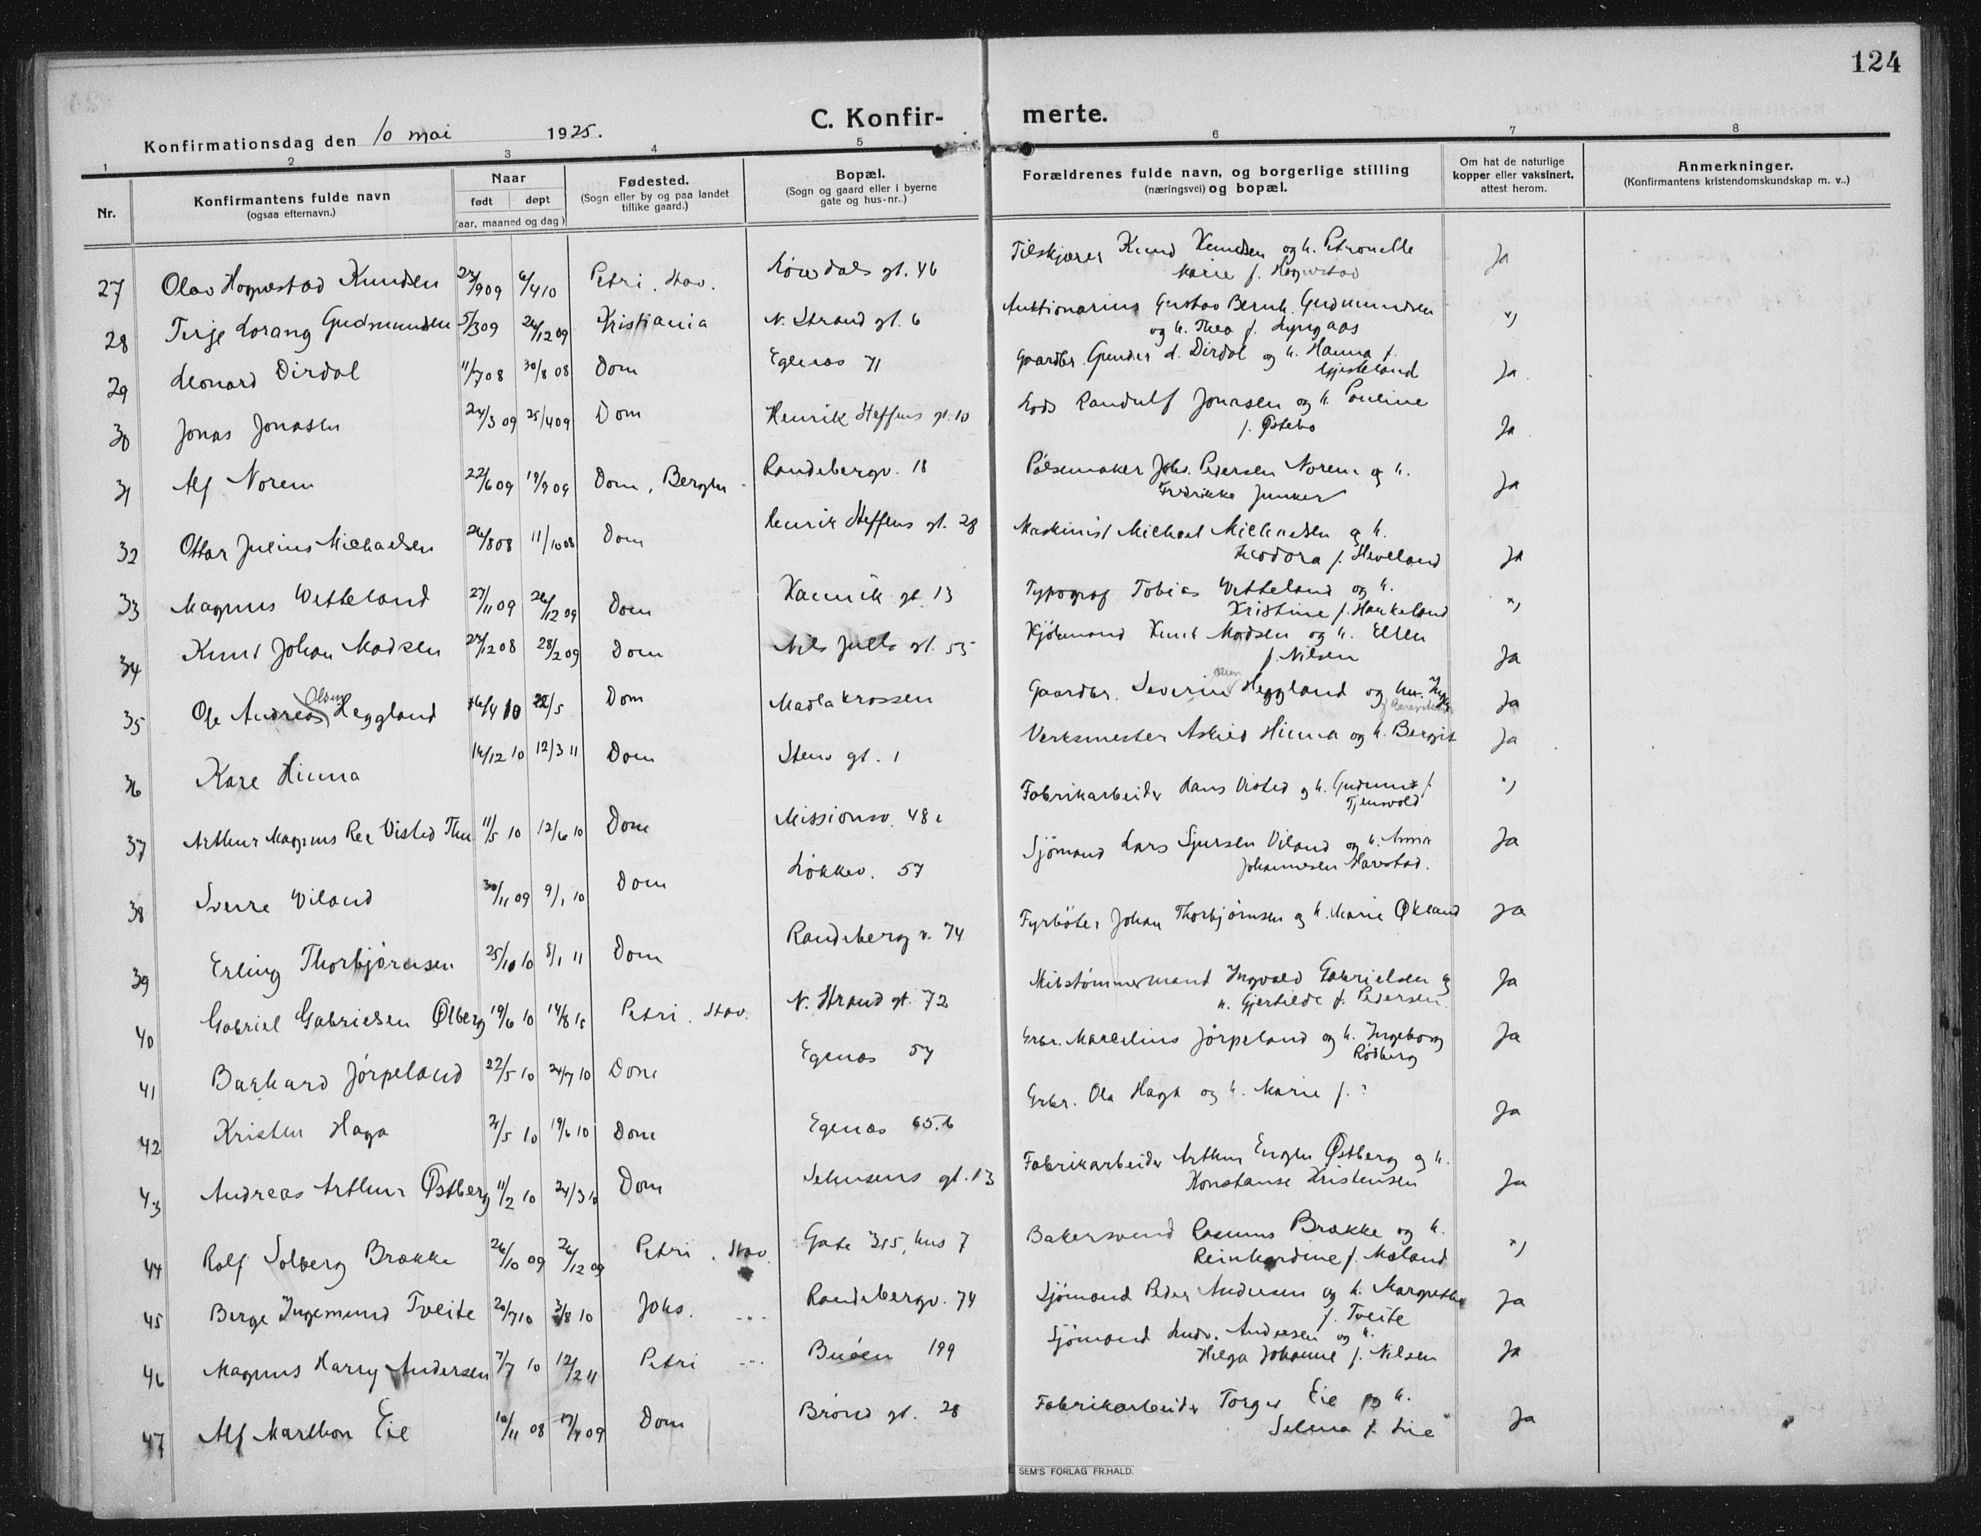 124
C. Konfir- merte.
Konfirmationsdag den 10 mai 1925.
1 2 3 4 5 6 7 8
Nr.
Konfirmantens fulde navn
(ogsaa efternavn.)
Naar
født døpt
(aar, maaned og dag)
Fødested.
(Sogn eller by og paa landet
tillike gaard.)
Bopæl.
(Sogn og gaard eller i byerne
gate og hus-nr.)
Forældrenes fulde navn, og borgerlige stilling
(næringsvei) og bopæl.
Om hat de naturlige
kopper eller vaksinert,
attest herom.
Anmerkninger.
(Konfirmantens kristendomskundskap m. v..)
27 Olav Hognestad Knudsen 6/4 10 Petri. Stav. gt. 46 Knud Knudsen og h. Petronelle Ja
Marie f. Hognestad
28 Terje Lorang Gudmundsen 5/3 09 26/12 09 Kristiania N. Strand gt. 6 Auktionarius Gustav Bernh. Gudmundsen "
og h. Thea f. Lyngaas
29 Leonard Dirdal 11/7 08 30/8 08 Dom Egenæs 71 Gaardbr. Gunder L. Dirdal og h. Hanna f. Ja
Gjesteland
30 Jonas Jonasen 24/3 09 25/4 09 Dom Henrik Steffens gt. 10 Randulf Jonasen og h. Pauline Ja
f. Østebø
31 Alf Norem 22/6 09 19/9 09 Dom, Randebergv. 18 Pølsemaker Johs. Pedersen Norem og h. Ja
Fredrikke Junker
32 Ottar Julius Michaelsen 26/8 08 11/10 08 Dom Henrik Steffens gt. 28 Maskinist Michael Michaelsen og h. Ja
Theodora f. Haveland
33 Magnus Wetteland 27/11 09 26/12 09 Dom Kannik gt. 13 Typograf Tobias Wetteland og h. "
Kristine f. Haukeland
34 Knut Johan Madsen 27/12 08 28/2 09 Dom Nils Juels gt. 55 Kjøbmand Knut Madsen og h. Ellen Ja
f. Nilsen
35 Ole Andreas Olsen Heggland 16/4 10 22/5 Dom Madlakrossen Gaardbr. Severin Olsen Heggland og hu. Ja
36 Kåre Hinna 14/12 10 12/3 11 Dom Stens gt. 1 Verksmester Askild Hinna og h. Bergit Ja
37 Arthur Magnus Ree Visted Thu 11/5 10 12/6 10 Dom Missionsv. 48 Fabrikarbeider Hans Visted og h. Gudrun f. "
Tjensvold
38 Sverre Viland 30/11 09 9/1 10 Dom Løkkev. 57 Sjømand Lars Sjursen Viland og h. Anna Ja
Johannesen Harestad.
39 Erling Thorbjørnsen 25/10 10 8/1 11 Dom Randeberg v. 74 Fyrbøter Johan Thorbjørnsen og h. Marie Økland Ja
40 Gabriel Gabrielsen Ølberg 19/6 10 14/8 10 Petri. Stav. N. Strand gt. 72 Skibstømmermand Ingvald Gabrielsen og Ja
h. Gjertilde f. Pedersen
41 Barhard Jørpeland 22/5 10 24/7 10 Dom Egenæs 57 Marselius Jørpeland og h. Ingeborg Ja
Rødberg
42 Kristen Haga 2/5 10 19/6 10 Dom Egenæs 65.b Ola Haga og h. Marie f. ? Ja
43 Andreas Arthur Østberg 11/2 10 24/3 10 Dom Sehusens gt. 13 Fabrikarbeider Arthur Engler Østberg og h. Ja
Konstanse Kristensen
44 Rolf Solberg Brække 26/10 09 26/12 09 Petri. Stav Gate 315, hus 7 Bakersvend Rasmus Brække og h. "
Reinhardine f. Mæland
45 Berge Ingemund Tveite 20/7 10 3/8 10 Johs. Randebergv. 74 Sjømand Peder Andersen og h. Margrethe Ja
f. Tveite
46 Magnus Harry Andersen 7/7 10 12/2 11 Petri Buøen 199 Sjømand Ludv. Andersen og h. Ja
Helga Johanne f. Nilsen
47 Alf Marthon Eie 10/11 08 Dom Brønd gt. 28 Fabrikarbeider Torger Eie og h. Ja
Selma f. Lie
SEM'S FORLAG FR.HALD.